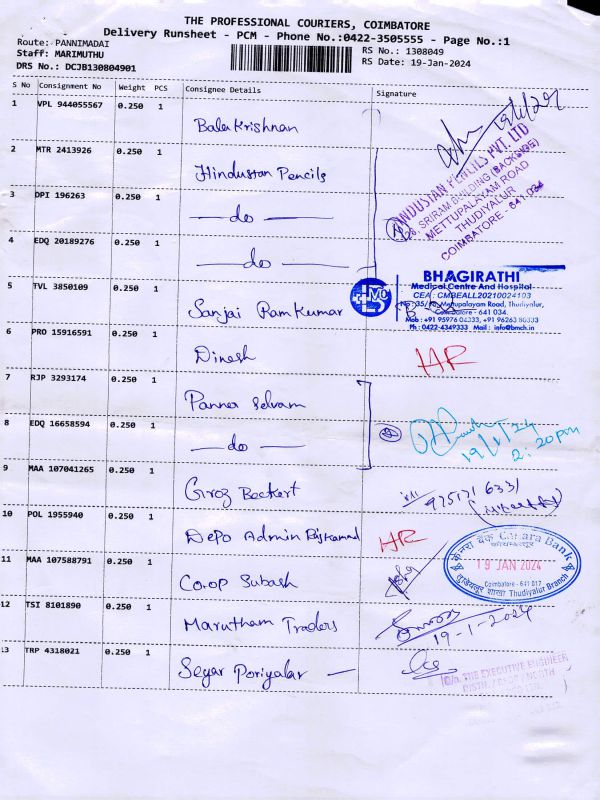 THE PROFESSIONAL COURIERS, COIMBATORE
Delivery Runsheet - PCM - Phone No.:0422-3505555 - Page No.:1
Route: PANNIMADAI
Staff: MARIMUTHU
DRS No.: DCJB130804901
RS No.: 1308049
RS Date: 19-Jan-2024
S No Consignment No Weight PCS Consignee Details Signature
1 VPL 944055567 0.250 1 Bala Krishnan
2 MTR 2413926 0.250 1 Hindustan Pencils
HINDUSTAN PENCILS PVT. LTD
SRIRAM BUILDING (BACKSIDE)
METTUPALAYAM ROAD
THUDIYALUR
COIMBATORE - 641 034
3 DPI 196263 0.250 1 — do —
4 EDQ 20189276 0.250 1 — do —
5 TVL 3850109 0.250 1 Sanjai Ram Kumar
BHAGIRATHI
Medical Centre And Hospital
CEA : CMBEALL20210024103
Mettupalayam Road, Thudiyalur,
Coimbatore - 641 034.
Mob : +91 95976 04333, +91 96263 80333
Ph : 0422-4349333 Mail : info@bmch.in
6 PRO 15916591 0.250 1 Dinesh HR
7 RJP 3293174 0.250 1 Panner Selvam
8 EDQ 16658594 0.250 1 — do —
19/1/24
2:20pm
9 MAA 107041265 0.250 1 Groz Beckert
10 POL 1955940 0.250 1 Depo Admin HR
केनरा बैंक Canara Bank
19 JAN 2024
Coimbatore - 641 017
Thudiyalur Branch
11 MAA 107588791 0.250 1 Co.op Subash
12 TSI 8101890 0.250 1 Marutham Traders
19-1-2024
13 TRP 4318021 0.250 1 Seyar Poriyalar —
O/o. THE EXECUTIVE ENGINEER